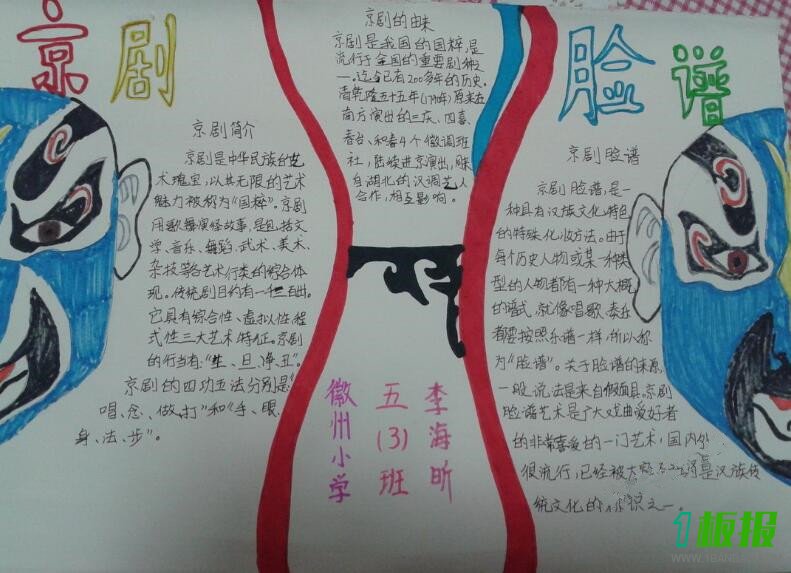 京剧
京剧简介
京剧是中华民族的艺
术瑰宝,以其无限的艺术
魅力被称为“国粹”。京剧
用歌舞演怪故事,是包括文
学、音乐、舞蹈、武术、美术、
杂技等各艺术行类的综合体
现。传统剧目约有一千三百出。
它具有综合性、虚拟性、程
式性三大艺术特征。京剧
的行当有:“生、旦、净、丑”。
京剧的四功五法分别是“
唱、念、做、打”和“手、眼、
身、法、步”。
京剧的由来
京剧是我国的国粹,是
流行于全国的重要剧种之
一。迄今已有200多年的历史。
清乾隆五十五年(1790年)原来在
南方演出的三庆、四喜、
春台、和春4个徽调班
社,陆续进京演出,同来
自湖北的汉调艺人
合作,相互影响。
李海昕
五(3)班
徽州小学
脸谱
京剧脸谱
京剧脸谱,是一
种具有汉族文化特色
的特殊化妆方法。由于
每个历史人物或某一种类
型的人物都有一种大概
的谱式,就像唱歌、奏乐
都要按照乐谱一样,所以称
为“脸谱”。关于脸谱的来源,
一般说法是来自假面具。京剧
脸谱艺术是广大戏曲爱好者
的非常喜爱的一门艺术,国内外
很流行,已经被大 是汉族传
统文化的标识之一。
1板报